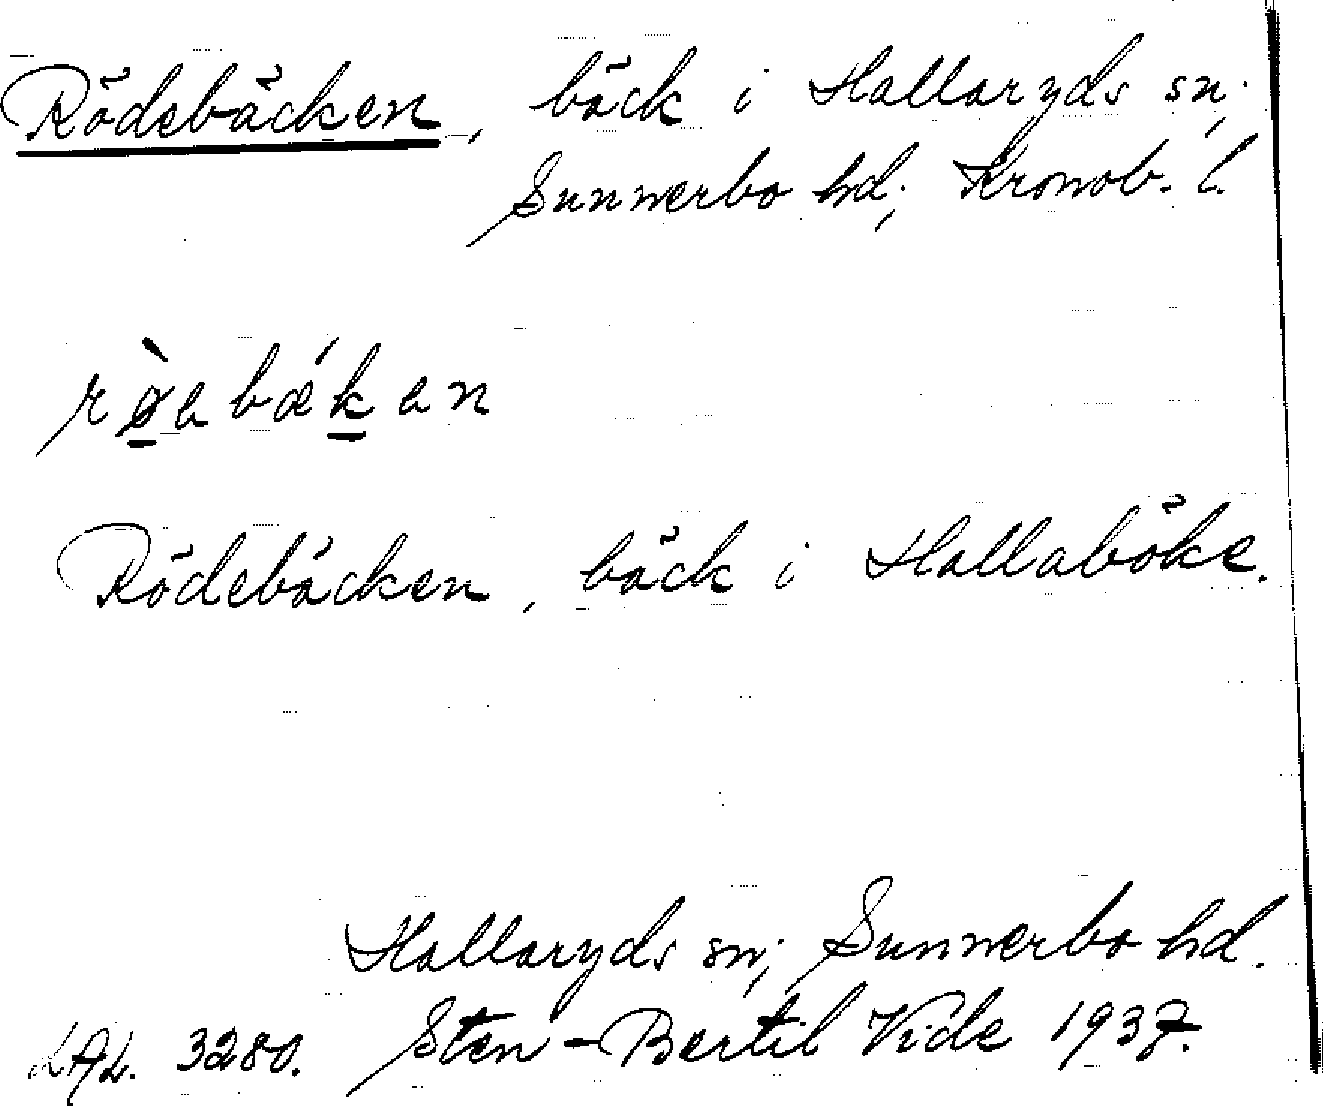 Rödebäcken, bäck i Hallaryds sn.,
Sunnerbo hd., Kronob. l.
rø̀abǽkan
Rödebäcken, bäck i Hallaböke.
Hallaryds sn., Sunnerbo hd.
LAL. 3280. Sten-Bertil Vide 1937.